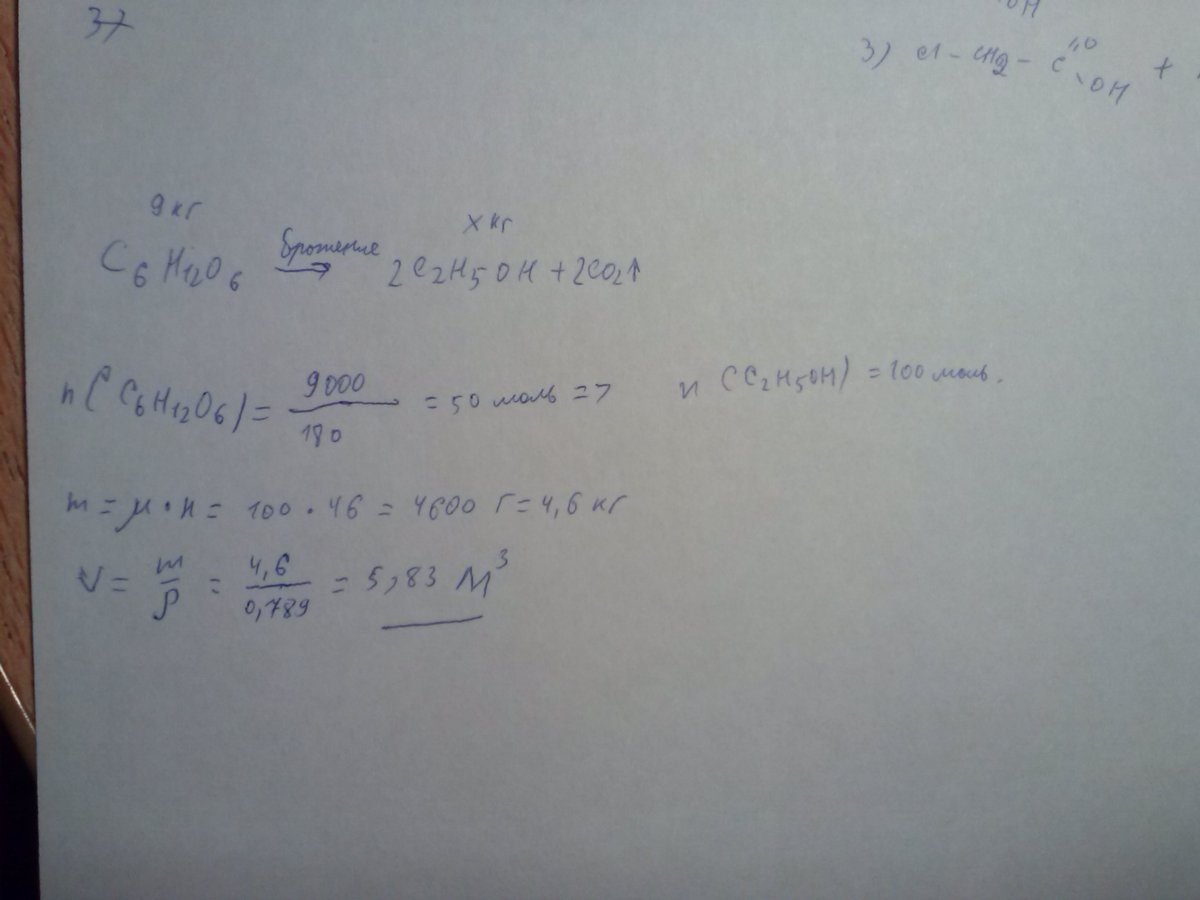 37
OH
3) Cl - CH2 - C "O \ OH +
9 кг
x кг
C6H12O6 брожение → 2C2H5OH + 2CO2↑
n(C6H12O6) = 9000/180 = 50 моль => n(C2H5OH) = 100 моль.
m = μ · n = 100 · 46 = 4600 г = 4,6 кг
V = m/ρ = 4,6/0,789 = 5,83 м³